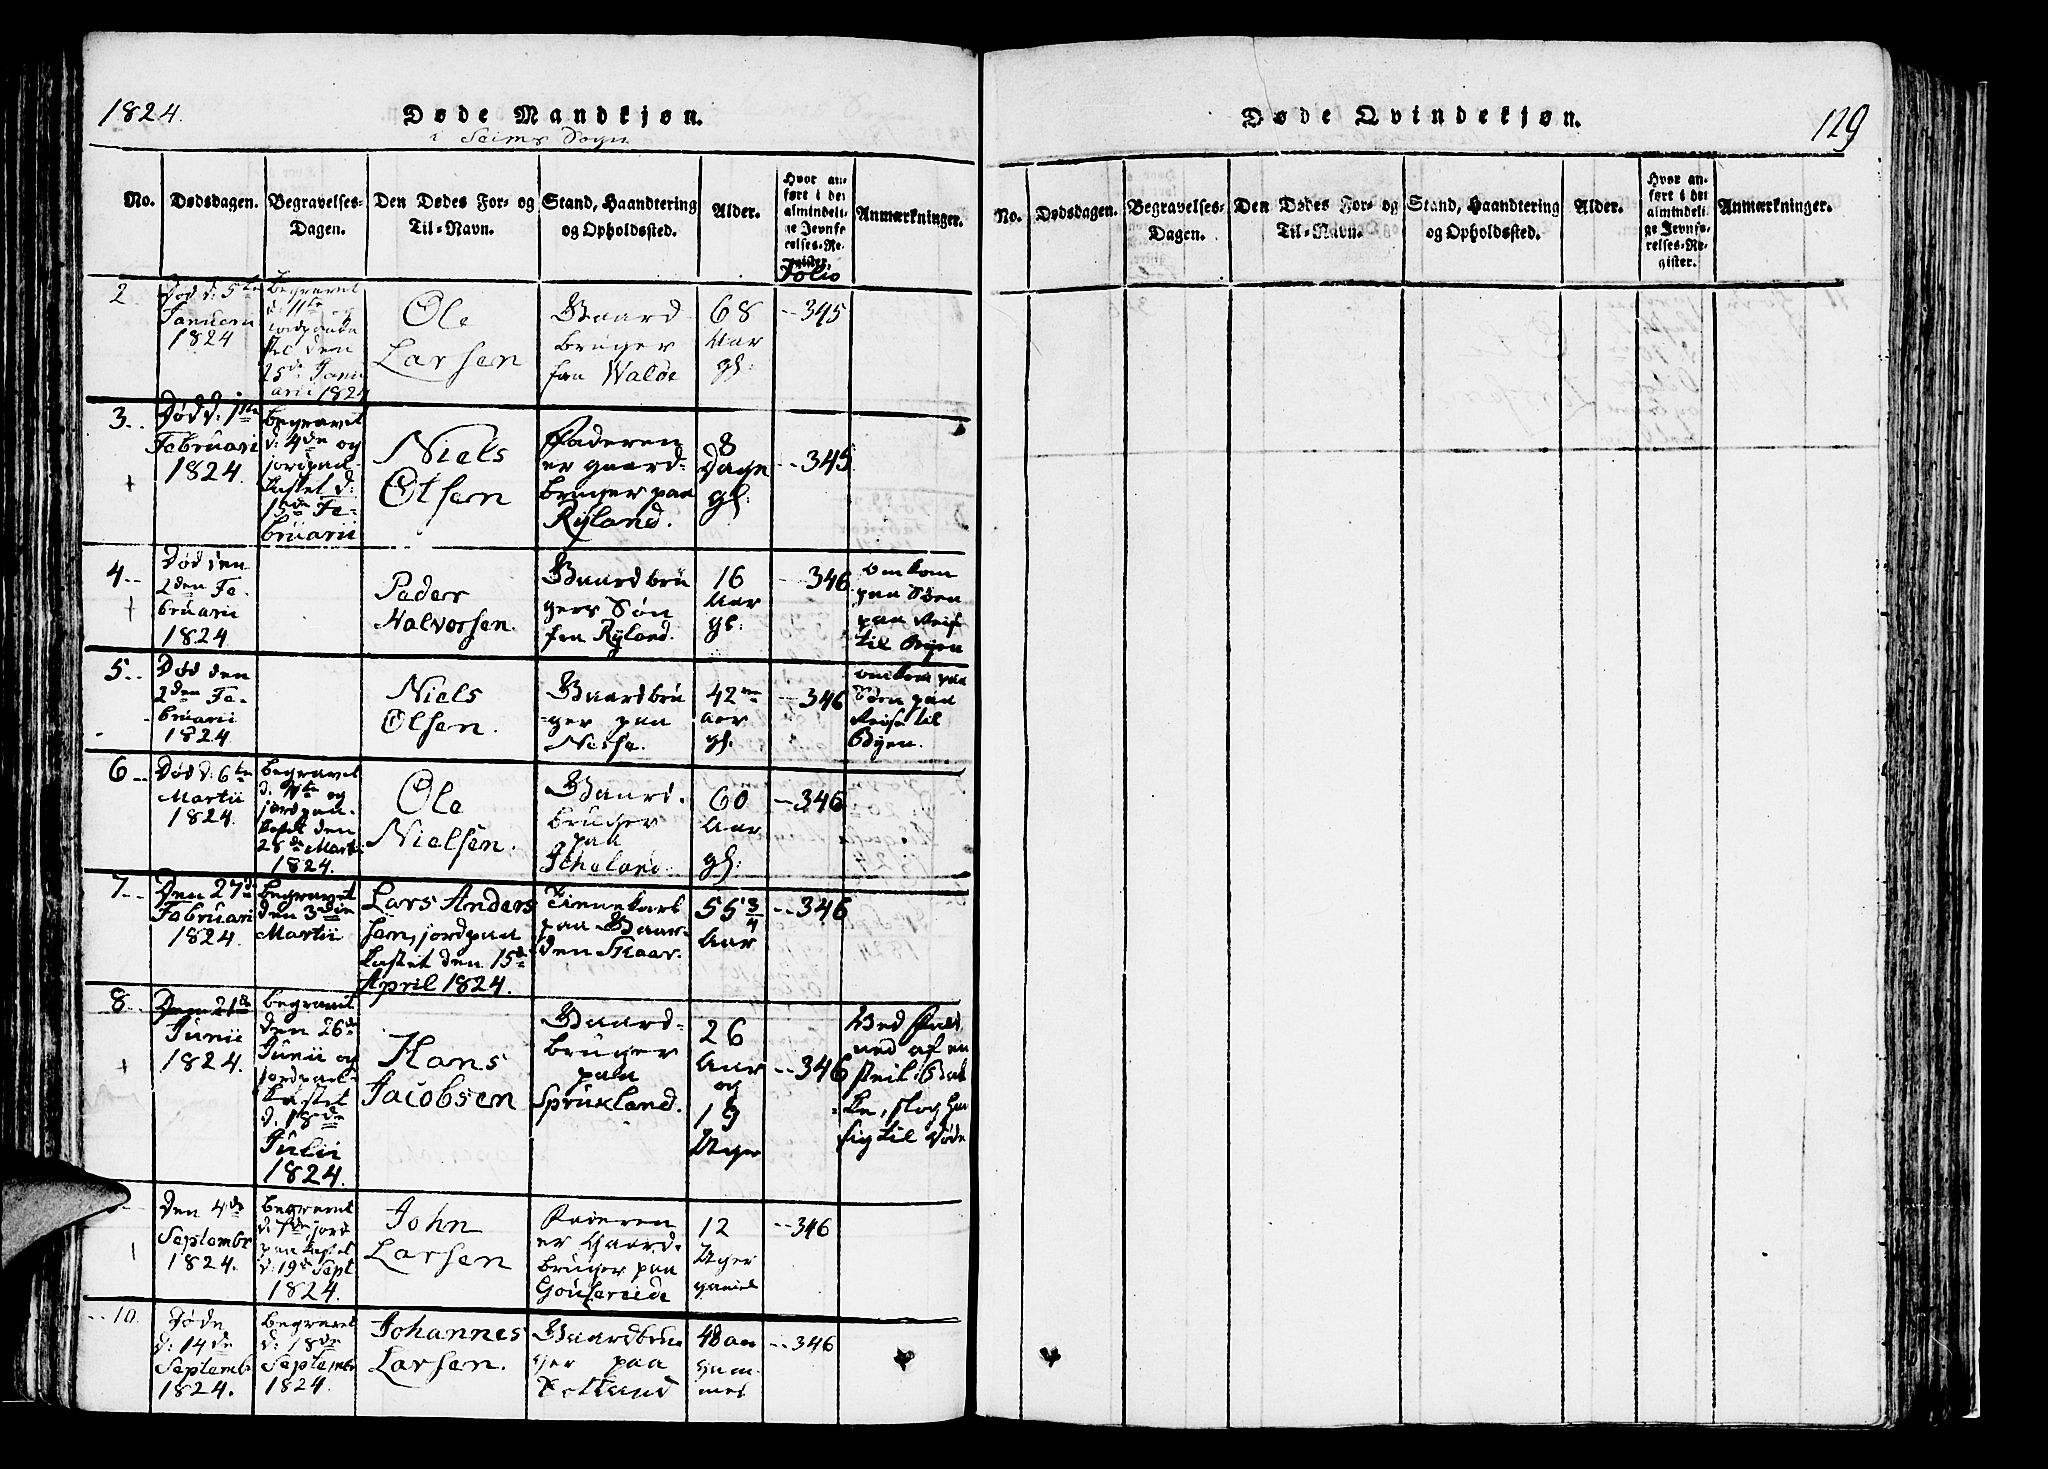 1824.
Døde Mandkjøn.
i Seims Sogn
No.
Dødsdagen.
Begravelses-
Dagen.
Den Dødes For- og
Til-Navn.
Stand, Haandtering
og Opholdssted.
Alder.
Hvor an-
ført i det
almindeli-
ge Jevnfø-
relses-Re-
gister.
Folio
Anmærkninger.
2
Død d: 5te
Januarii
1824
begravet
d: 11te og
jordpaaka-
stet den
25de Janu
arii 1824
Ole
Larsen
Gaard
bruger
fra Walde
68
Aar
gl:
345
3
Død d: 1ste
Februarii
1824.
begravet
d: 4de og
jordpaa-
kastet d:
15de Fe-
bruarii
Niels
Olsen
Faderen
er gaard-
bruger paa
Ryland.
8
Dage
gl:
345
4
Død den
2den Fe-
bruarii
1824
Peder
Halvorsen.
Gaardbru
gers Søn
fra Ryland.
16
Aar
gl:
346
omkom
paa Søen
paa Reise
til Byen
5
Død den
2den Fe-
bruarii
1824
Niels
Olsen.
Gaardbru
ger paa
Nesse.
42
aar
gl.
346
omkom paa
Søen paa
Reise til
Byen.
6
Død d: 6te
Martii
1824.
begravet
d. 9te og
jordpaa-
kastet den
28de Martii
1824.
Ole
Nielsen.
Gaard-
bruger
paa
60
Aar
gl:
346
7
Den 27de
Februarii
1824.
begravet
den 3die
Martii
Lars Anders
sen, jordpaa
kastet den 15de
April 1824.
Tienekarl
paa Gaar-
den Skaar.
55 3/4
Aar
346
8
Den 21de
Junii
1824.
begravet
den 26de
Junii og
jordpaa-
kastet
d. 18de
Julii
1824.
Hans
Jacobsen
Gaard-
bruger
paa
Sprukland.
26
Aar
og
19
Uger
346
Ved Fald
ned af en
steil Bak
ke, slog han
sig til Døde
Den 4de
Septembr
1824.
begravet
d: 7de, jord
paa kastet
d: 19de Sept
1824.
John
Larsen
Faderen
er Gaard-
bruger paa
12
Uger
gamel
346
10.
Døde
d: 14de
Septembr
1824.
begravet
d: 18de
Septembr
1824.
Johannes
Larsen.
Gaardbru
ger paa
48 aar
gam-
mel
346
Døde Qvindekjøn.
129
No.
Dødsdagen.
Begravelses-
Dagen.
Den Dødes For- og
Til-Navn.
Stand, Haandtering
og Opholdssted.
Alder.
Hvor an-
ført i det
almindeli-
ge Jevnfø-
relses-Re-
gister.
Anmærkninger.